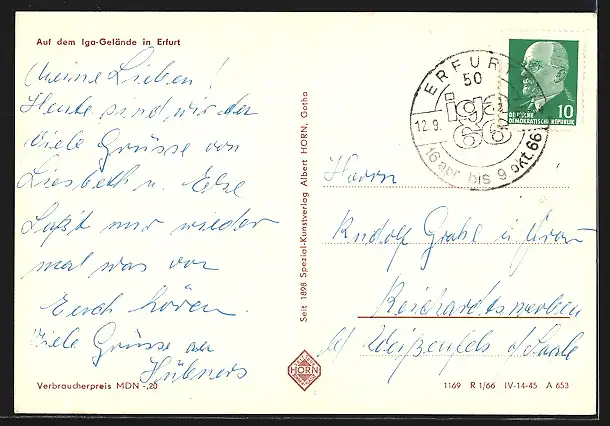 Auf dem Iga-Gelände in Erfurt
Meine Lieben!
Heute sind wir da
Viele Grüsse von
Liesbeth u.
Laßt mir wieder
mal was von
Euch hören.
Viele Grüsse an
Hübners
Verbraucherpreis MDN -,20
Seit 1898 Spezial-Kunstverlag Albert HORN, Gotha
HORN
ERFURT
50
iga
66
12.9.
16 apr bis 9 okt. 66
10
DEUTSCHE
DEMOKRATISCHE REPUBLIK
Herrn
Rudolf u Frau
Reichardtswerben
bei Weißenfels / Saale
1169 R 1/66 IV-14-45 A 653